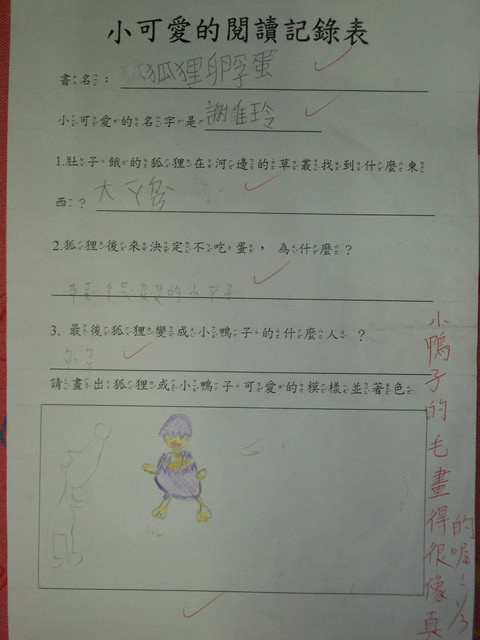 小可愛的閱讀記錄表
書名：狐狸孵蛋
小可愛的名字是謝維玲
1.肚子餓的狐狸在河邊的草叢找到什麼東
西？大
2.狐狸後來決定不吃蛋，為什麼？
的小
3.最後狐狸變成小鴨子的什麼人？
請畫出狐狸或小鴨子可愛的模樣並著色
小鴨子的毛畫得很像真
的喔！1/3